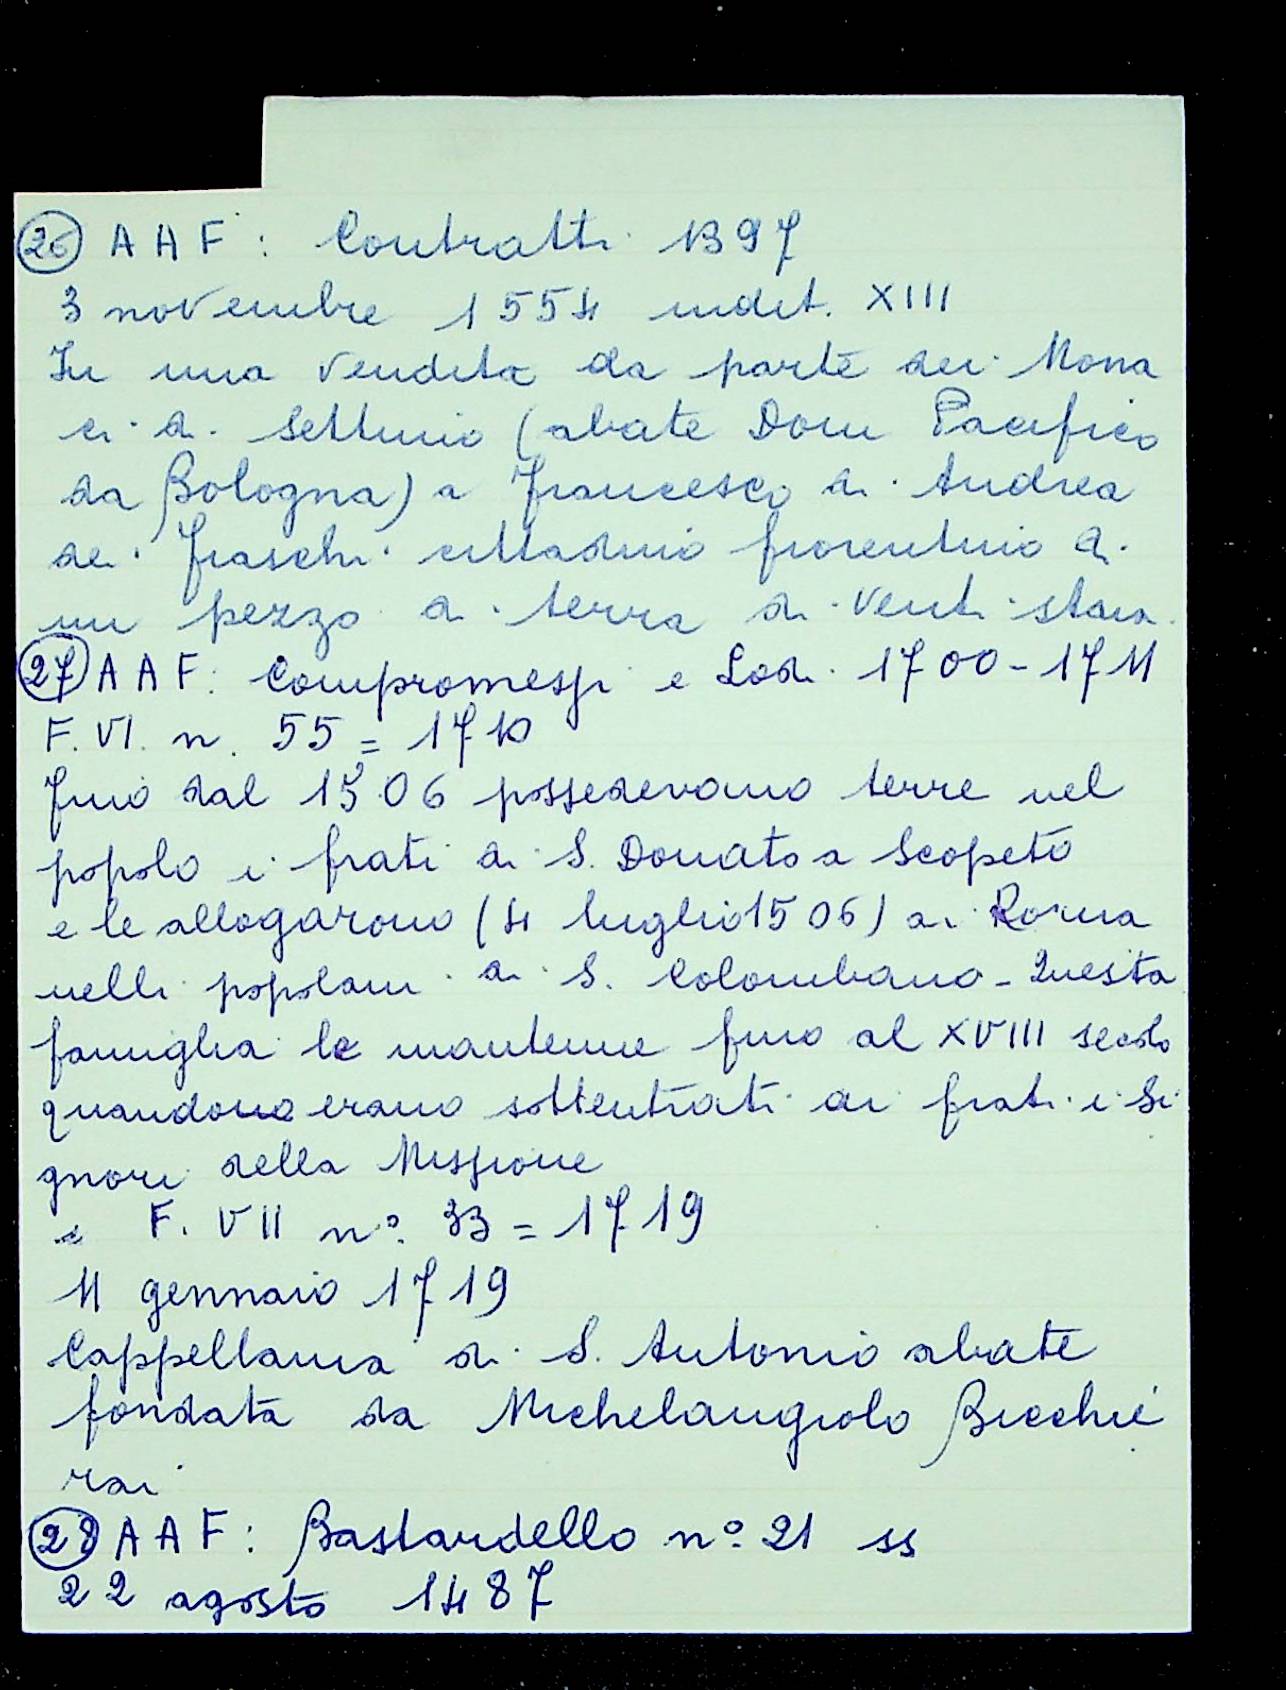 26 AAF: Contratti 1397
3 novembre 1554 indit. XIII
In una vendita da parte dei Mona
ci di Settimo (abate Dom Pacifico
da Bologna) a Francesco di Andrea
dei Fraschi cittadino fiorentino di
un pezzo di terra di venti staia
27 AAF: Compromessi e Lodi 1700-1711
F. VI. n. 55 = 1710
Fino dal 1506 possedevano terre nel
popolo i frati di S. Donato a Scopeto
e le allogarono (4 luglio 1506) ai Roma
nelli popolani di S. Colombano - Questa
famiglia le mantenne fino al XVIII secolo
quandono erano sottentrati ai frati i Si
gnori della Missione
e F. VII n°. 33 = 1719
11 gennaio 1719
Cappellania di S. Antonio abate
fondata da Michelangiolo Bicchie
rai
28 AAF: Bastardello n°. 21 ss
22 agosto 1487